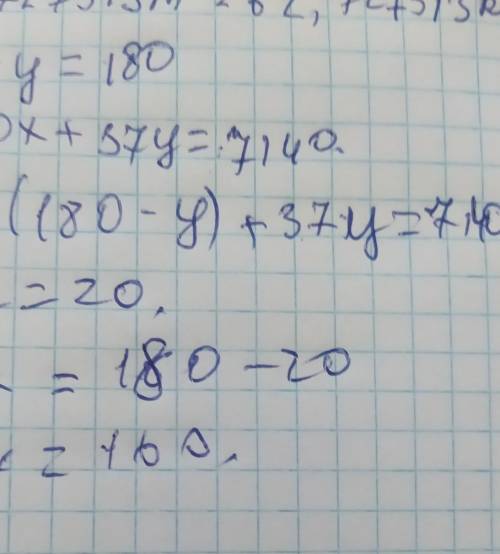 y = 180
0x + 37y = 7140.
(180 - y) + 37y = 7140
= 20.
= 180 - 20
= 160.